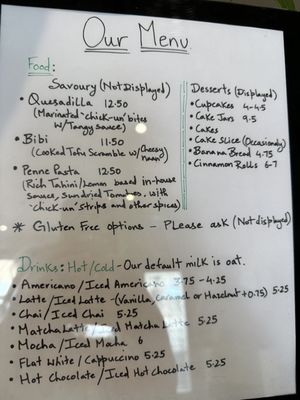 Our Menu
Food:
Savoury (Not Displayed)
• Quesadilla 12.50
(Marinated "chick-un" bites
w/Tangy sauce)
• Bibi 11.50
(Cooked Tofu Scramble w/Cheesy
• Penne Pasta 12.50
(Rich Tahini/Lemon based in-house
sauces, sundried Tomatoes, with
"chick-un" strips and other spices)
Desserts (Displayed)
• Cupcakes 4-4.5
• Cake Jars 9.5
• Cakes
• Cake Slice (Occasionally)
• Banana Bread 4.75
• Cinnamon Rolls 6-7
* Gluten Free options - Please ask (Not displayed)
Drinks: Hot/Cold - Our default milk is oat.
• Americano/Iced Americano 3.75-4.25
• Latte/Iced Latte - (Vanilla, Caramel or Hazelnut +0.75) 5.25
• Chai/Iced Chai 5.25
• Matcha Latte/Iced Matcha Latte 5.25
• Mocha/Iced Mocha 6
• Flat White/Cappuccino 5.25
• Hot Chocolate/Iced Hot Chocolate 5.25